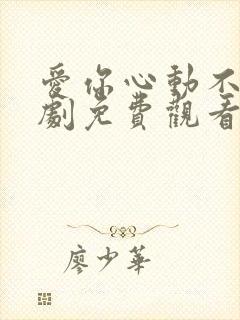 愛你心動不
劇免費觀看
廖少華